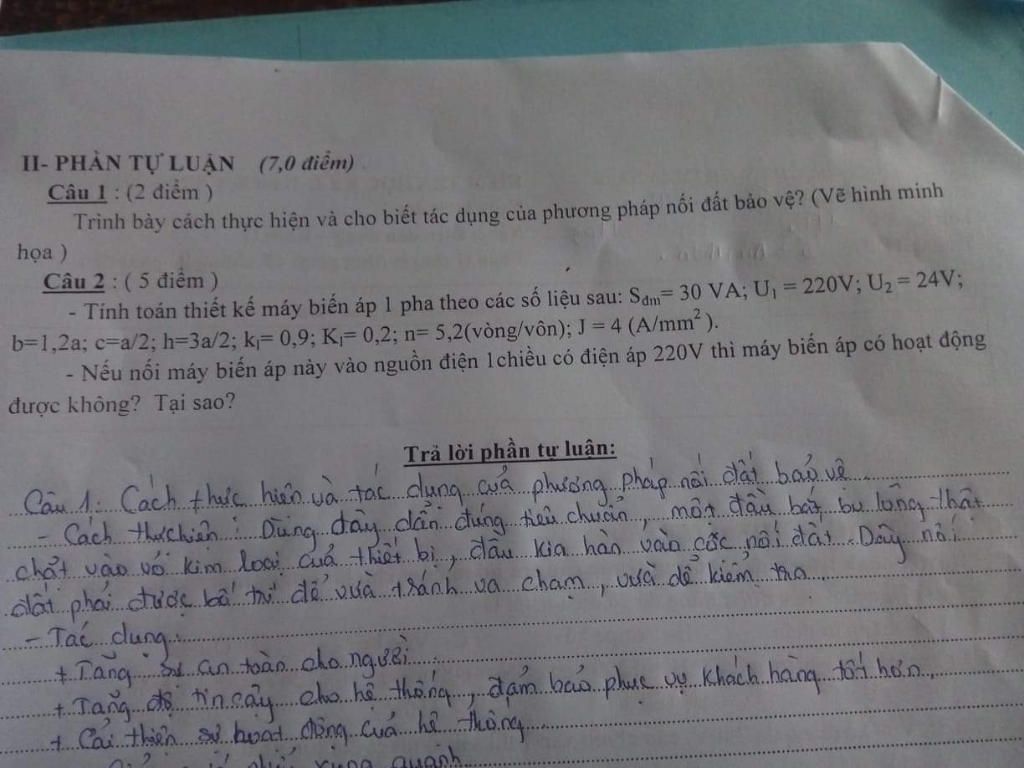 II- PHẦN TỰ LUẬN (7,0 điểm)
Câu 1 : (2 điểm )
Trình bày cách thực hiện và cho biết tác dụng của phương pháp nối đất bảo vệ? (Vẽ hình minh
họa )
Câu 2 : ( 5 điểm )
- Tính toán thiết kế máy biến áp 1 pha theo các số liệu sau: Sđm= 30 VA; U1 = 220V; U2 = 24V;
b=1,2a; c=a/2; h=3a/2; kl= 0,9; Kl= 0,2; n= 5,2(vòng/vôn); J = 4 (A/mm2 ).
- Nếu nối máy biến áp này vào nguồn điện 1chiều có điện áp 220V thì máy biến áp có hoạt động
được không? Tại sao?
Trả lời phần tự luận:
Câu 1: Cách thực hiện và tác dụng của phương pháp nối đất bảo vệ
- Cách thực hiện : Dùng dây dẫn đúng tiêu chuẩn, một đầu bắt bu lông thật
chặt vào vỏ kim loại của thiết bị, đầu kia hàn vào cọc nối đất. Dây nối
đất phải được bố trí để vừa tránh va chạm, vừa dễ kiểm tra
- Tác dụng:
+ Tăng sự an toàn cho người
+ Tăng độ tin cậy cho hệ thống, đảm bảo phục vụ khách hàng tốt hơn
+ Cải thiện sự hoạt động của hệ thống
xung quanh